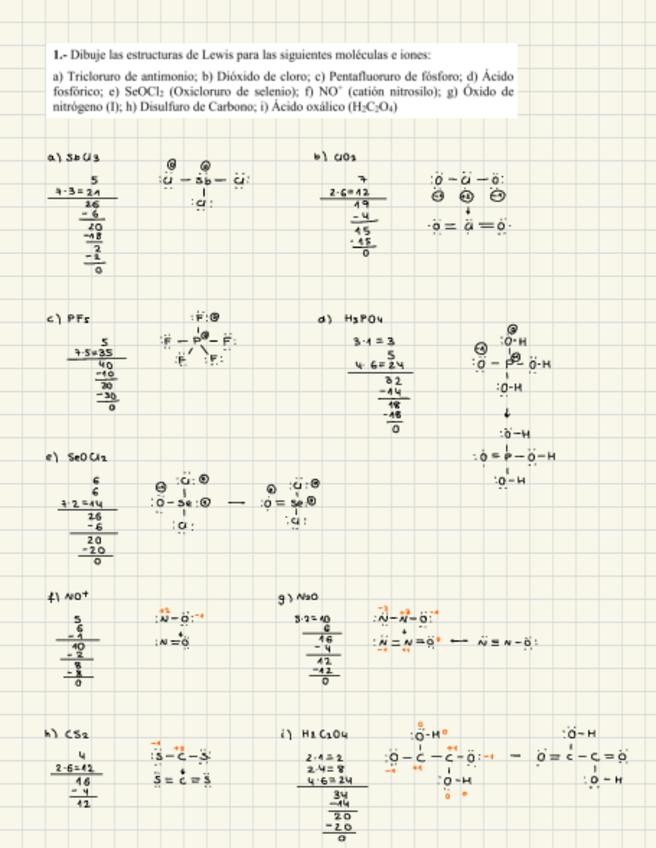 1.- Dibuje las estructuras de Lewis para las siguientes moléculas e iones:
a) Tricloruro de antimonio; b) Dióxido de cloro; c) Pentafluoruro de fósforo; d) Ácido
fosfórico; e) SeOCl₂ (Oxicloruro de selenio); f) NO⁺ (catión nitrosilo); g) Óxido de
nitrógeno (I); h) Disulfuro de Carbono; i) Ácido oxálico (H₂C₂O₄)
a) SbCl3
5
7·3=21
26
-6
20
-18
2
-2
0
:Cl – Sb – Cl:
:Cl:
b) ClO2
7
2·6=12
19
-4
15
-15
0
:O – Cl – O:
·O = Cl = O·
c) PF5
5
7·5=35
40
-10
30
-30
0
:F:
:F – P – F:
:F :F:
d) H3PO4
3·1=3
5
4·6=24
32
-14
18
-18
0
:O-H
:O – P – O-H
:O-H
:O-H
:O = P – O-H
:O-H
e) SeOCl2
6
6
7·2=14
26
-6
20
-20
0
:Cl:
:O – Se:
:Cl:
:Cl:
:O = Se
:Cl:
f) NO+
5
6
-1
10
-2
8
-8
0
+2
:N-O: -1
:N=O
g) N2O
5·2=10
6
16
-4
12
-12
0
:N-N-O: -1
:N=N=O
N≡N-O:
h) CS2
4
2·6=12
16
-4
12
-1 +2
:S-C-S:
S=C=S
i) H2C2O4
2·1=2
2·4=8
4·6=24
34
-14
20
-20
0
:O-H
:O-C-C-O: -1
-1 +1
:O-H
:O-H
O=C-C=O
:O-H